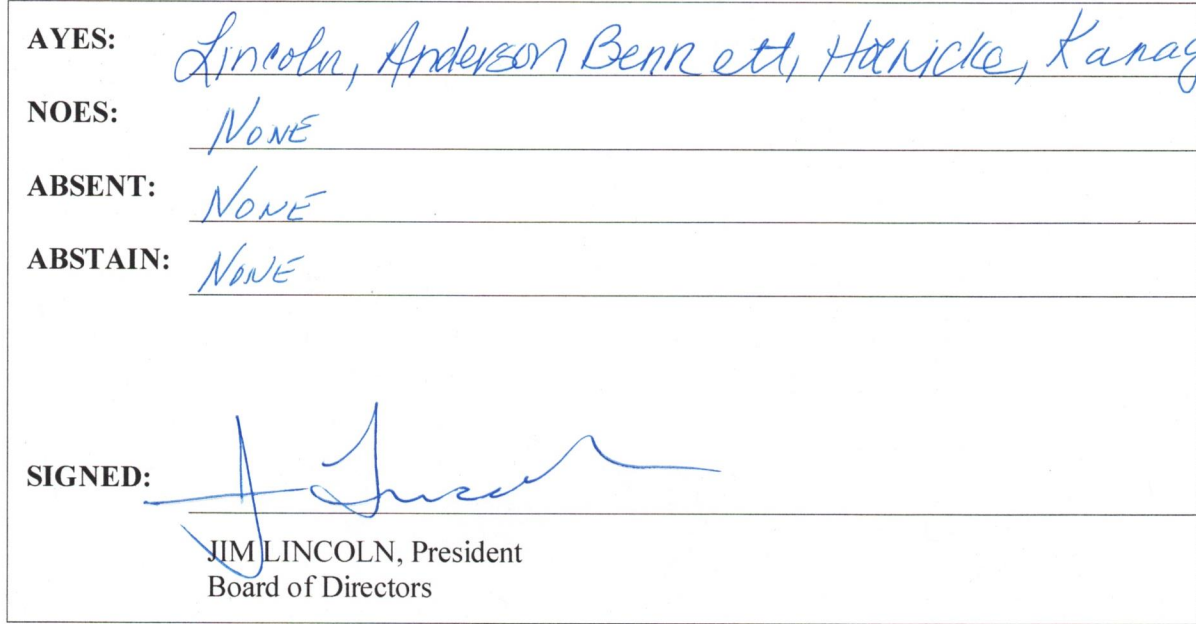 AYES: Lincoln, Anderson Bennett, Hänicke, Kanag
NOES: NONE
ABSENT: NONE
ABSTAIN: NONE
SIGNED: J Lincoln
JIM LINCOLN, President
Board of Directors